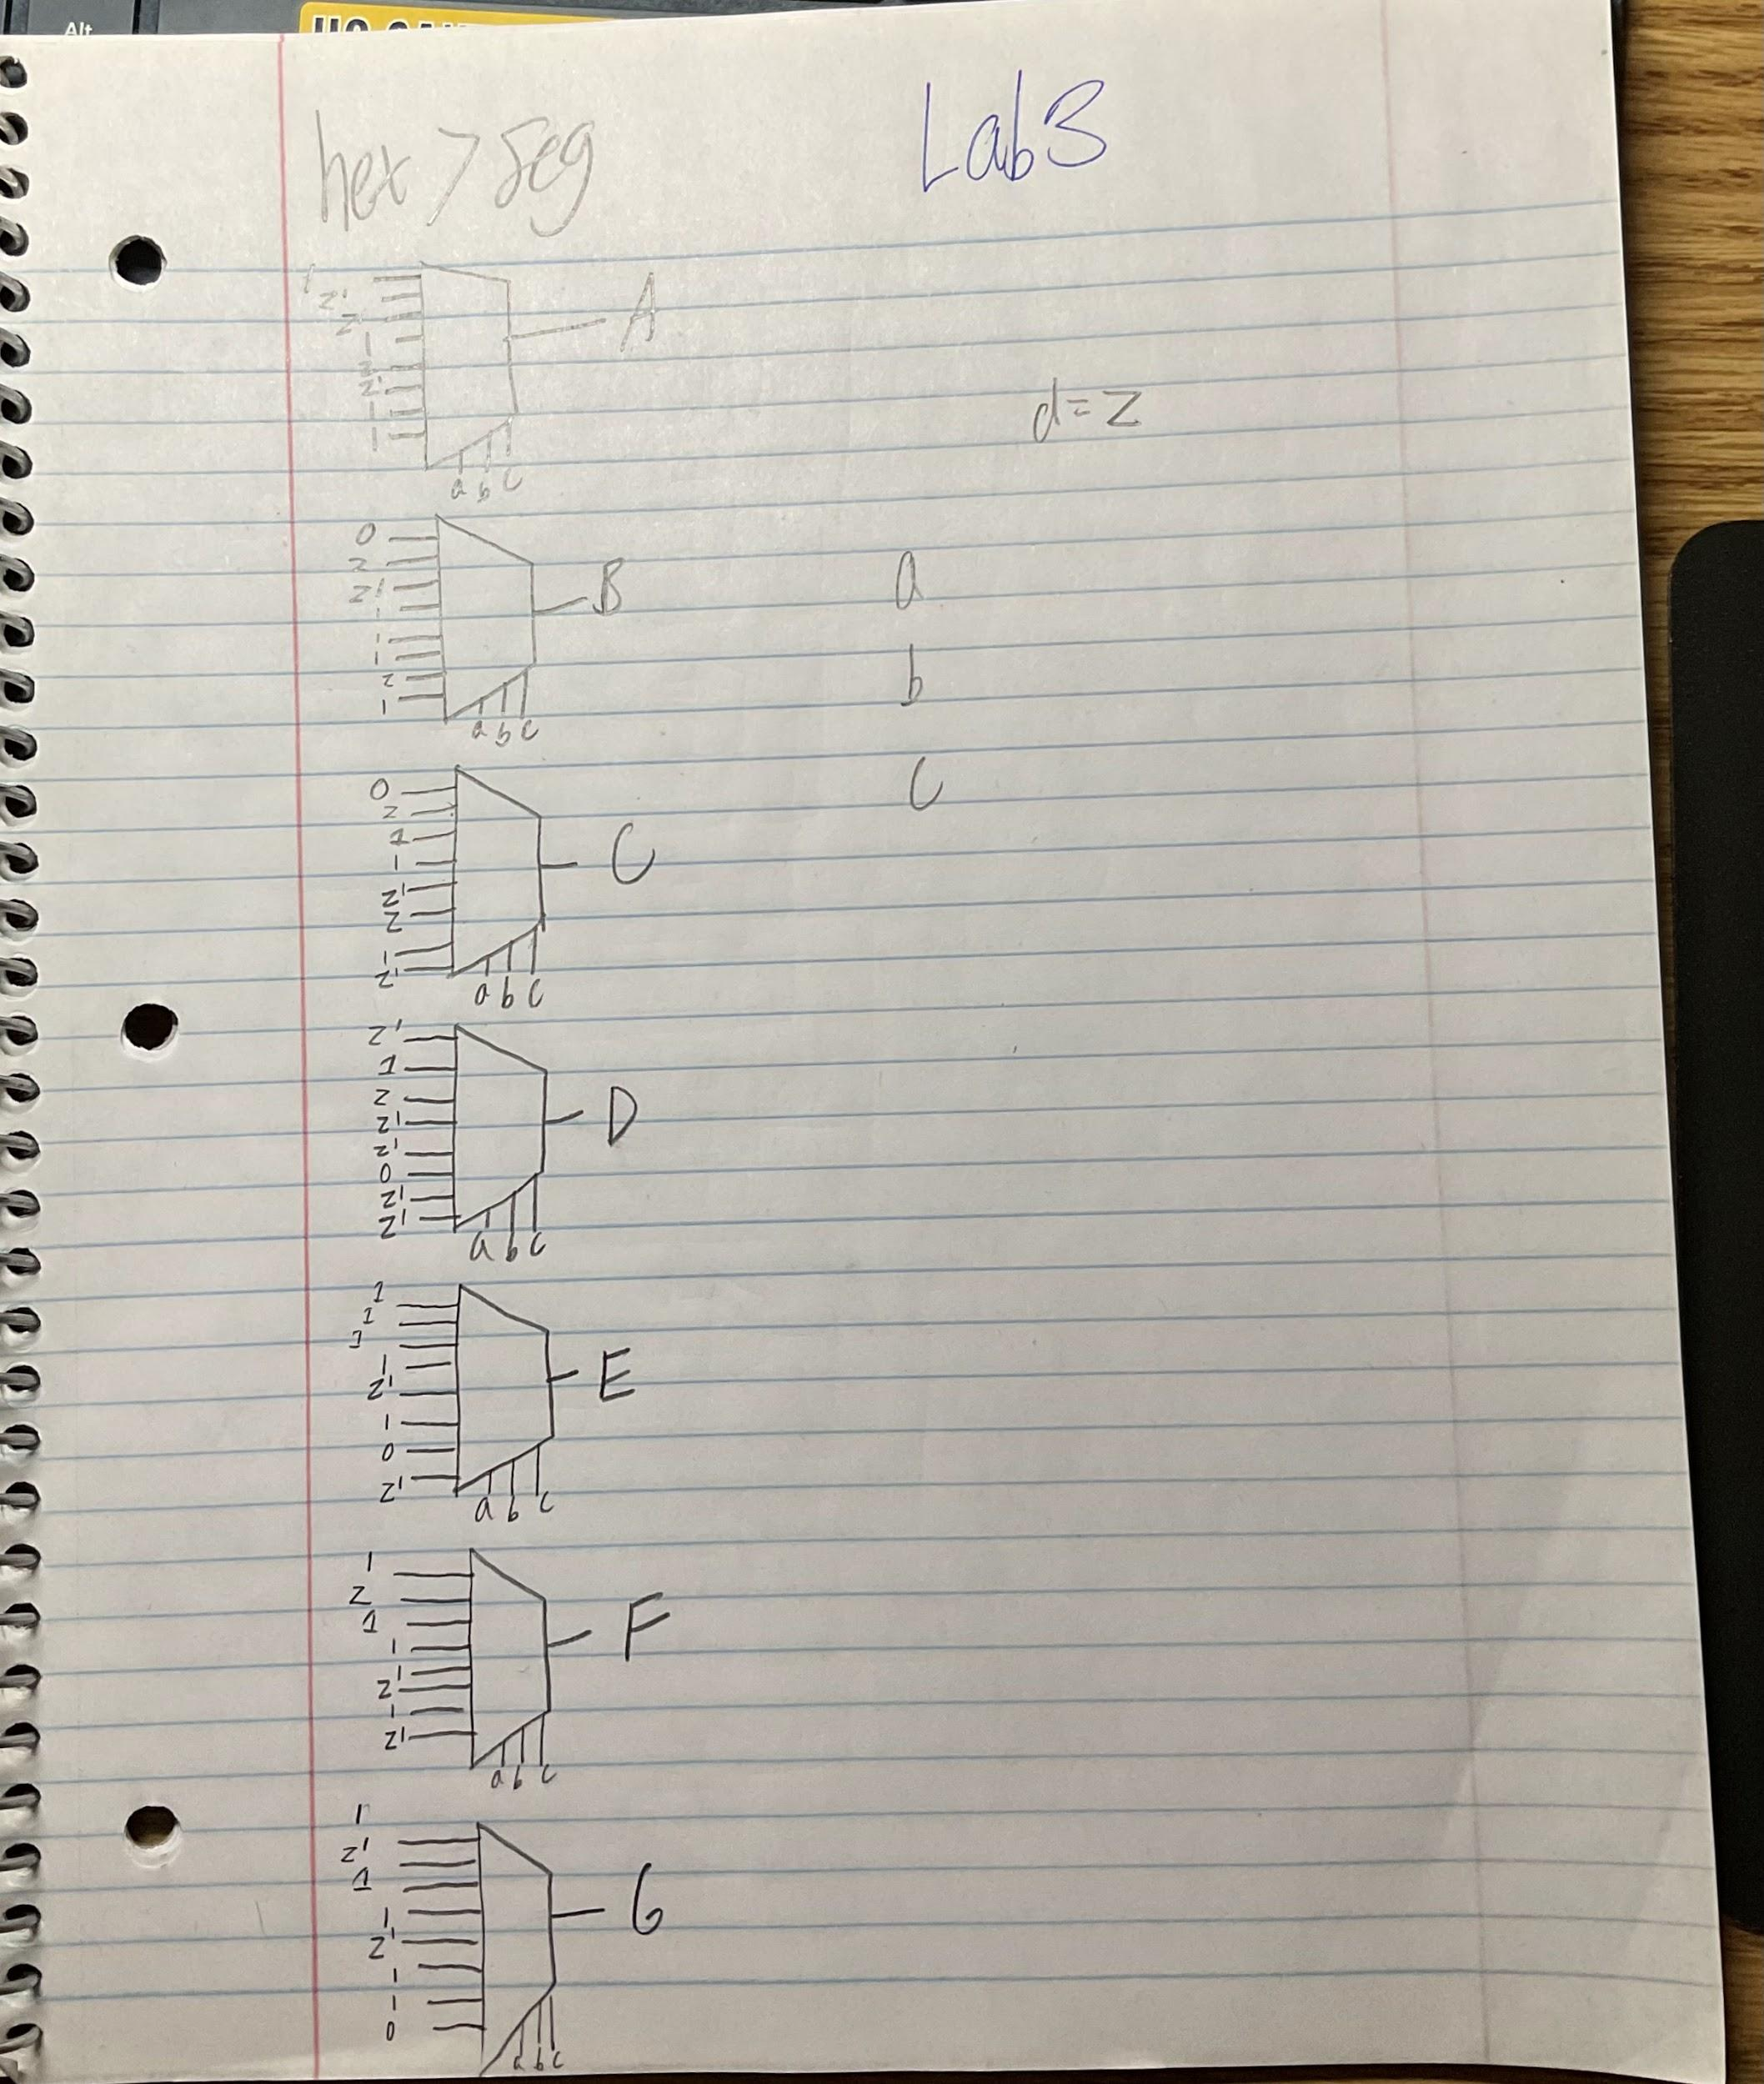 Alt
hex > seg
Lab 3
1
z'
z
1
z
z'
1
1
A
a b c
d=z
0
z
z'
1
1
1
z
1
B
a b c
a
b
c
0
z
1
1
z'
z
1
z'
C
a b c
z'
1
z
z'
z'
0
z'
z'
D
a b c
1
1
1
1
z'
1
0
z'
E
a b c
1
z
1
1
1
z
1
z'
F
a b c
1
z'
1
1
z'
1
1
0
G
a b c